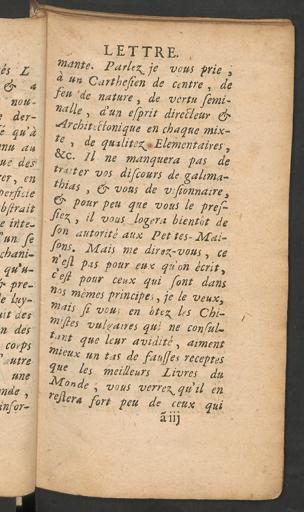 és L
& a
nou-
der-
e qu'à
nu au
que des
er, en
perficie
bstrait
e inte-
'un se
chani-
qu'u-
pre-
de luy-
uit des
n des
corps
l'autre
une
nde,
infor-
LETTRE.
mante. Parlez je vous prie,
à un Carthesien de centre, de
feu de nature, de vertu semi-
nalle, d'un esprit directeur &
Architectonique en chaque mix-
te, de qualitez Elementaires,
&c. Il ne manquera pas de
traiter vos discours de galima-
thias, & vous de visionnaire,
& pour peu que vous le pres-
siez, il vous logera bientôt de
son autorité aux Petites-Mai-
sons. Mais me direz-vous, ce
n'est pas pour eux qu'on écrit,
c'est pour ceux qui sont dans
nos mêmes principes, je le veux,
mais si vous en ôtez les Chi-
mistes vulgaires qui ne consul-
tant que leur avidité, aiment
mieux un tas de fausses receptes
que les meilleurs Livres du
Monde, vous verrez qu'il en
restera fort peu de ceux qui
ãiij